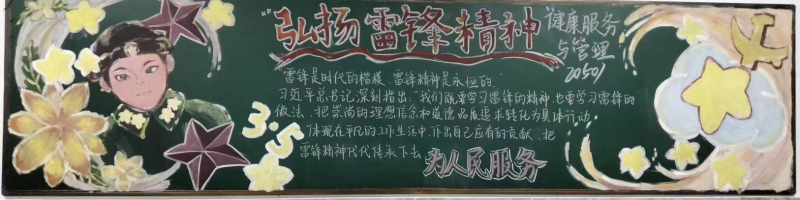 弘扬雷锋精神
健康服务
与管理
20501
雷锋是时代的楷模，雷锋精神是永恒的。
习近平总书记深刻指出："我们既要学习雷锋的精神，也要学习雷锋的
做法，把崇高的理想信念和道德品质追求转化为具体行动，
体现在平凡的工作生活中，作出自己应有的贡献，把
雷锋精神代代传承下去
3.5
为人民服务